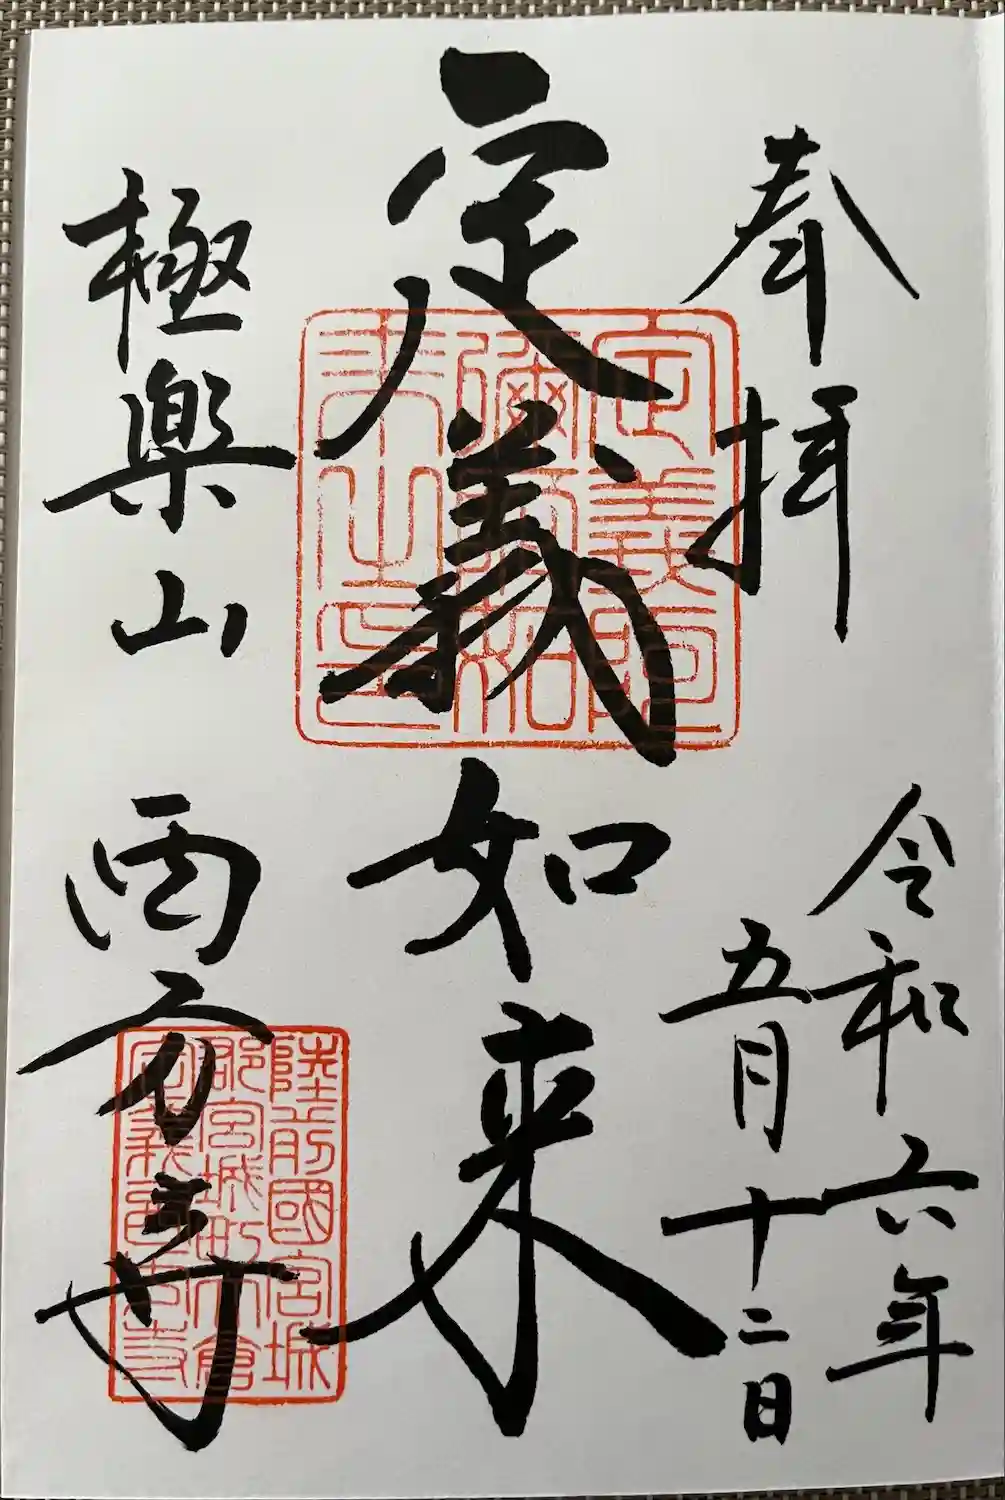 奉拝
令和六年
五月十二日
定義如来
定義阿
彌陀如
来之印
極楽山 西方寺
陸前國宮城
郡宮城町大倉
定義西方寺